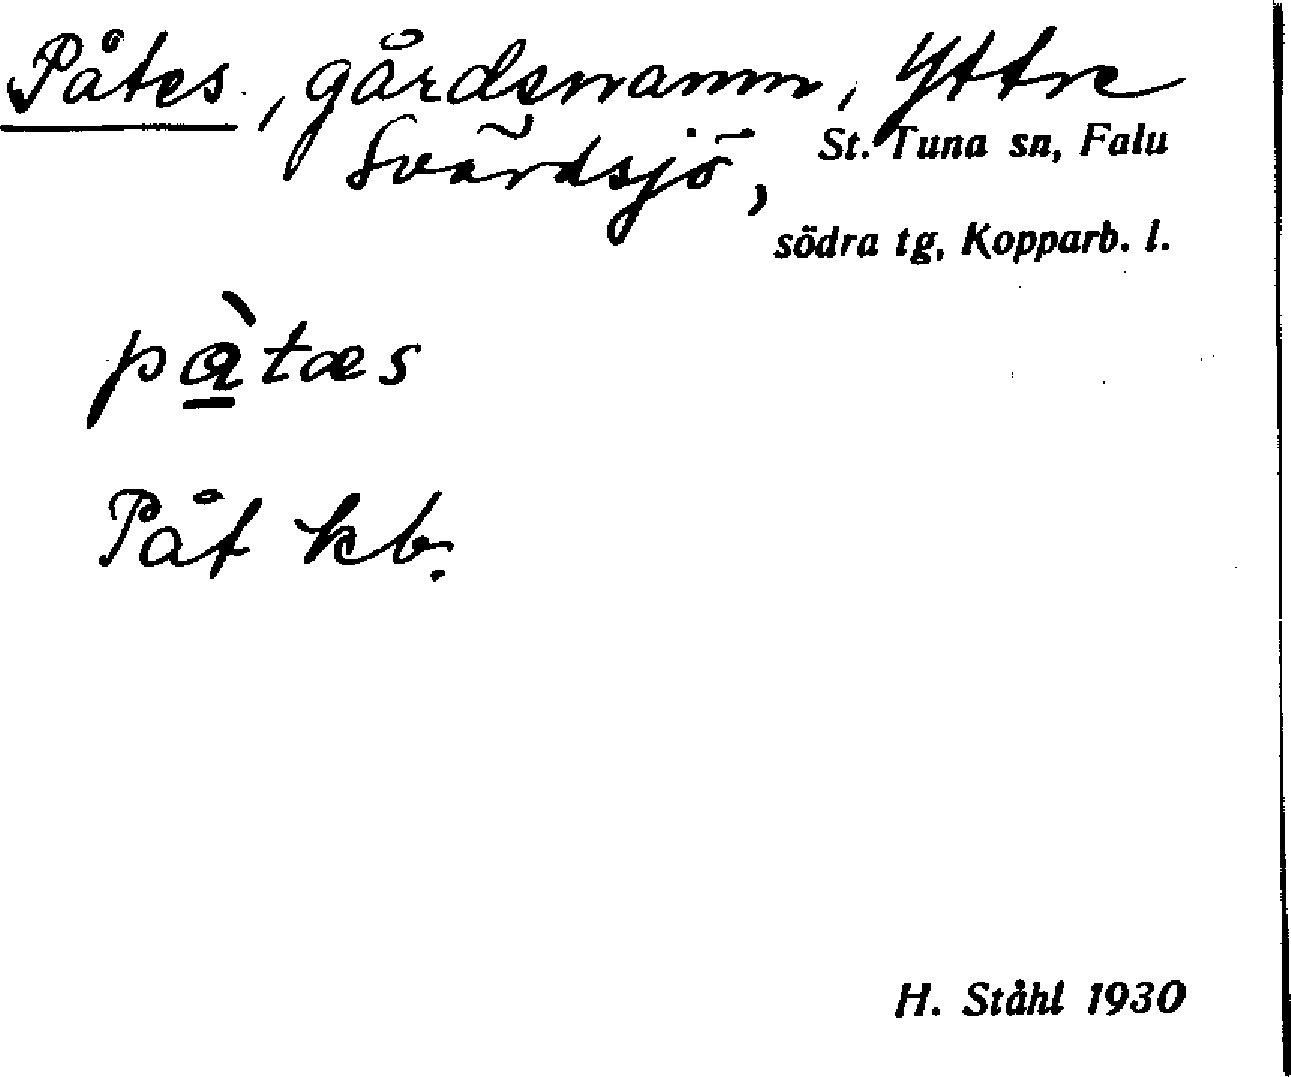 Påtes, gårdsnamn, Yttre
Svärdsjö, St. Tuna sn, Falu
södra tg, Kopparb. l.
pàtæs
Påt kb.
H. Ståhl 1930